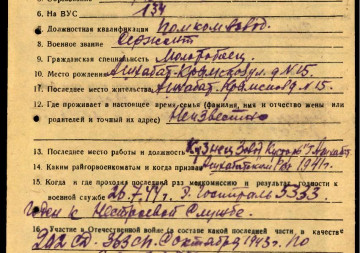 6. На ВУС 134
7. Должностная квалификация Помкомвзвод.
8. Военное звание Сержант
9. Гражданская специальность
10. Место рождения Ашхабад. ул. д. №15.
11. Последнее место жительства Ашхабад. д №15.
12. Где проживает в настоящее время семья (фамилия, имя и отчество жены или
родителей и точный их адрес) Неизвестно
13. Последнее место работы и должность Кузнец Завод
14. Каким райгорвоенкоматом и когда призван РВК 1941 г.
15. Когда и где проходил последний раз медкомиссию и результат годности к
военной службе 26.7.44 г. Госпиталь 3333.
Годен к нестроевой службе.
16. Участие в Отечественной войне (в составе какой последней части, в качестве
242 сд. 363 сп. С октября 1943 г. по